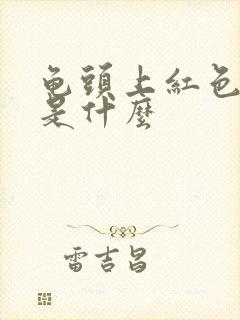 龟頭上紅色
是什麼
雷吉昌